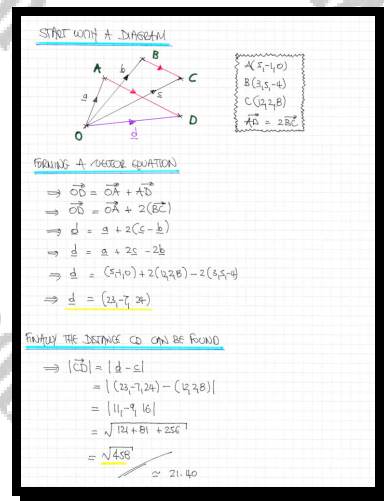 START WITH A DIAGRAM
A
B
C
D
O
a
b
c
d
A(5,-1,0)
B(3,5,-4)
C(12,2,8)
AD = 2BC
FORMING A VECTOR EQUATION
⇒ OD = OA + AD
⇒ OD = OA + 2(BC)
⇒ d = a + 2(c - b)
⇒ d = a + 2c - 2b
⇒ d = (5,-1,0) + 2(12,2,8) - 2(3,5,-4)
⇒ d = (23,-7,24)
FINALLY THE DISTANCE CD CAN BE FOUND
⇒ |CD| = |d - c|
= |(23,-7,24) - (12,2,8)|
= |11,-9,16|
= √121 + 81 + 256
= √458
≃ 21.40